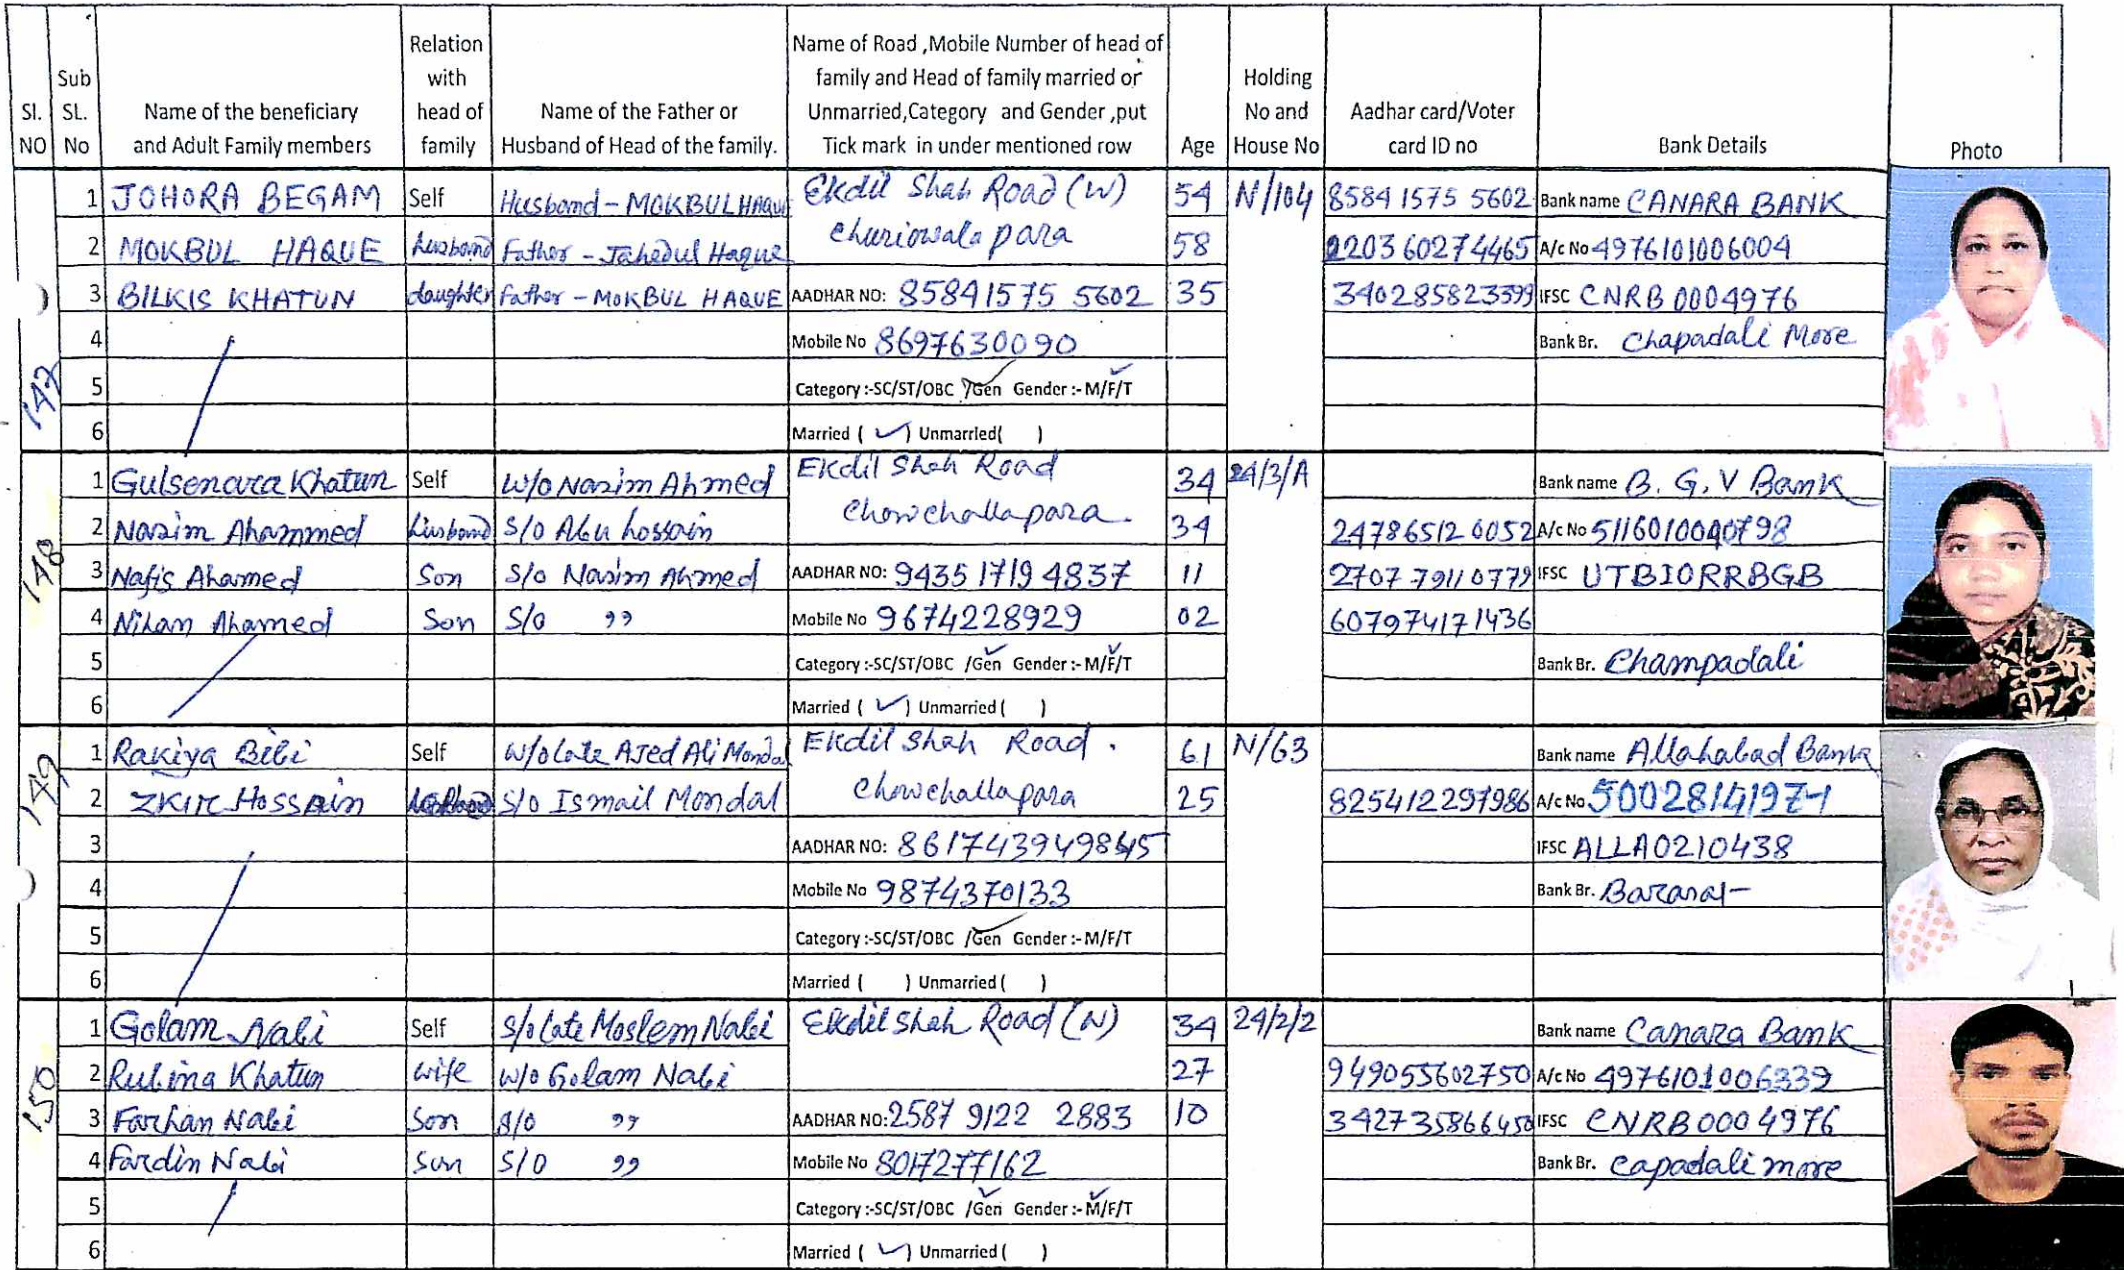 Sl. NO | Sub SL. No | Name of the beneficiary and Adult Family members | Relation with head of family | Name of the Father or Husband of Head of the family. | Name of Road ,Mobile Number of head of family and Head of family married or Unmarried,Category and Gender ,put Tick mark in under mentioned row | Age | Holding No and House No | Aadhar card/Voter card ID no | Bank Details | Photo
147
1 JOHORA BEGAM Self Husband - MOKBUL HAQUE Ekdil Shah Road (W) 54 N/104 8584 1575 5602 Bank name CANARA BANK
2 MOKBUL HAQUE husband Father - Jahedul Haque 58 220360274465 A/c No 4976101006004
3 BILKIS KHATUN daughter Father - MOKBUL HAQUE AADHAR NO: 85841575 5602 35 340285823599 IFSC CNRB 0004976
4 Mobile No 8697630090 Bank Br. Chapadali More
5 Category :-SC/ST/OBC /Gen Gender :- M/F/T
6 Married ( ✓ ) Unmarried( )
148
1 Gulsenara Khatun Self W/o Nazim Ahmed Ekdil Shah Road 34 24/3/A Bank name B. G. V Bank
2 Nazim Ahammed husband S/o Abu hossain Chowchallapara. 34 247865126052 A/c No
3 Nafis Ahamed Son S/o Nazim Ahmed AADHAR NO: 9435 1719 4837 11 2707 7911 0779 IFSC UTBI0RRBGB
4 Nihan Ahamed Son S/o ,, Mobile No 9674228929 02 607974171436
5 Category :-SC/ST/OBC /Gen Gender :- M/F/T Bank Br. Champadali
6 Married ( ✓ ) Unmarried ( )
149
1 Rakiya Bibi Self W/o Late Ajed Ali Mondal Ekdil Shah Road . 61 N/63 Bank name Allahabad Bank
2 Hossain S/o Ismail Mondal Chowchallapara 25 825412297986 A/c No 50028141971
3 AADHAR NO: IFSC ALLA0210438
4 Mobile No 9874370133 Bank Br. Barasat
5 Category :-SC/ST/OBC /Gen Gender :- M/F/T
6 Married ( ) Unmarried ( )
150
1 Golam Nabi Self S/o Late Moslem Nabi Ekdil Shah Road (N) 34 24/2/2 Bank name Canara Bank
2 Rubina Khatun wife W/o Golam Nabi 27 949055602750 A/c No 4976101006339
3 Farhan Nabi Son S/o ,, AADHAR NO: 2587 9122 2883 10 342735866450 IFSC CNRB 0004976
4 Fardin Nabi Son S/O ,, Mobile No 8017277162 Bank Br. Capadali more
5 Category :-SC/ST/OBC /Gen Gender :- M/F/T
6 Married ( ✓ ) Unmarried ( )